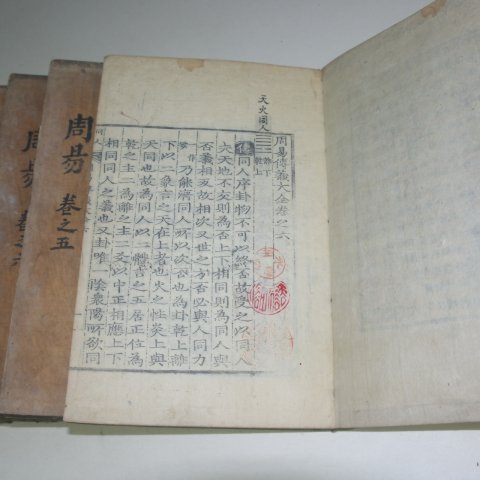 天火同人
離下
乾上
周易傳義大全卷之六
傳同人序卦物不可以終否故受之以同人
夫天地不交則為否上下相同則為同人與
否義相反故相次又世之方否必與人同力
乃能濟同人所以次否也為卦乾上離
下以二象言之天在上者也火之性炎上與
天同也故為同人以二體言之五居正位為
乾之主二為離之主二爻以中正相應上下
相同同人之義也又卦唯一陰衆陽所欲同
同人
周易 卷之五
周易 卷之六